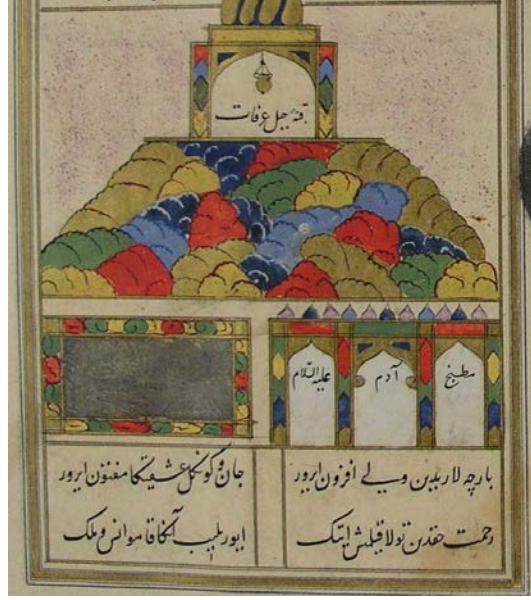 قبهٔ جبل عرفات
مطبخ آدم علیه السّلام
بارچه لاریدین ولے افزون ایرور جان و کونکل عشقیکا مفتون ایرور
رحمت حقدن تولا قیلمش ایتک ایورولیب آنکا قامو انس و ملک